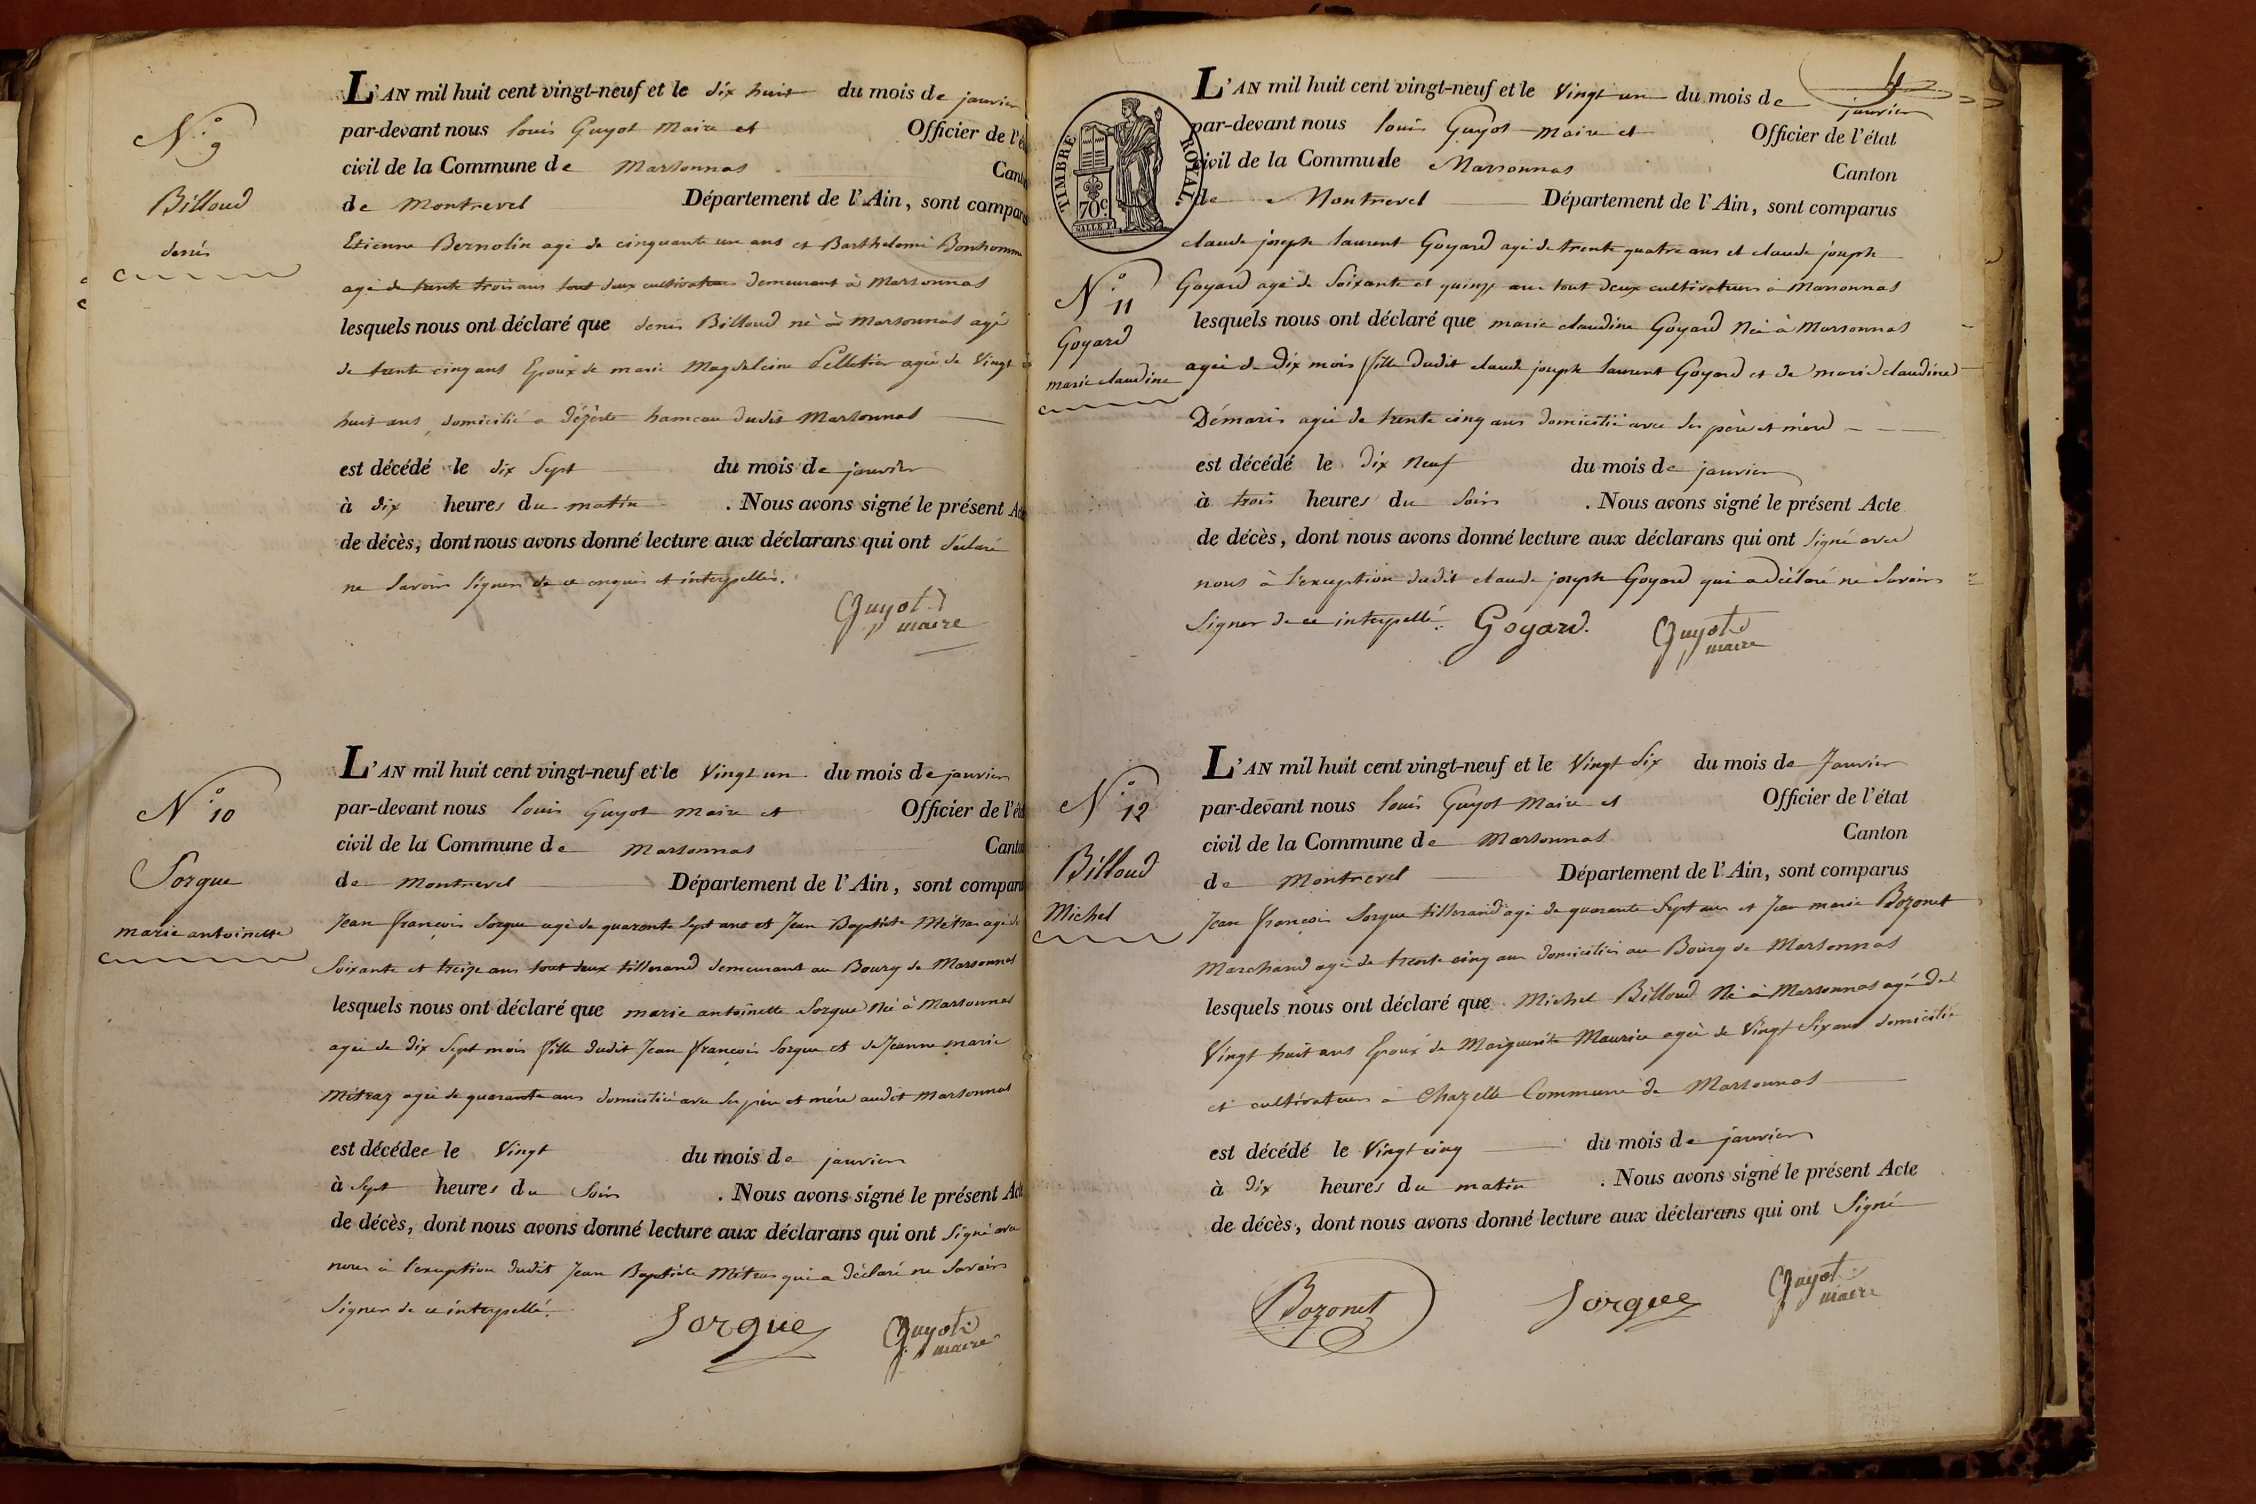 L'AN mil huit cent vingt-neuf et le dix huit du mois de janvier
N.° 9
par-devant nous louis Guyot Maire et Officier de l'é
civil de la Commune de Marsonnas Cant
Billoud
de Montrevel Département de l'Ain, sont compar
denis
Etienne Bernolin agé de cinquante un ans et Barthelomi Bonhomme
agé de trente trois ans tout deux cultivateurs demeurant à Marsonnas
lesquels nous ont déclaré que denis Billoud né à Marsonnas agé
de trente cinq ans Epoux de marie Magdeleine Pelletier agée de Vingt
huit ans, domicilié a hameau dudit Marsonnas
est décédé le dix Sept du mois de janvier
à dix heures du matin . Nous avons signé le présent Acte
de décès, dont nous avons donné lecture aux déclarans qui ont déclaré
ne Savoir Signer de ce enquis et interpellés.
Guyot
maire
L'AN mil huit cent vingt-neuf et le Vingt un du mois de janvier
N° 10
par-devant nous louis Guyot maire et Officier de l'éta
civil de la Commune de Marsonnas Canton
Sorgue
de Montrevel Département de l'Ain, sont compar
marie antoinette
Jean françois Sorgue agé de quarante Sept ans et Jean Baptiste Métras agé de
Soixante et treize ans tout deux tillerand demeurant au Bourg de Marsonnas
lesquels nous ont déclaré que marie antoinette Sorgue Née à Marsonnas
agée de dix Sept mois fille dudit Jean françois Sorgue et de Jeanne marie
Métraz agée de quarante ans domiciliée avec Ses père et mère audit Marsonnas
est décédee le Vingt du mois de janvier
à Sept heures du Soir . Nous avons signé le présent Act
de décès, dont nous avons donné lecture aux déclarans qui ont Signé avec
nous à l'exeuption dudit Jean Baptiste Métras qui a déclaré ne Savoir
Signer de ce interpellé.
Sorgue
Guyot
maire
4
TIMBRE ROYAL
70c.
L'AN mil huit cent vingt-neuf et le Vingt un du mois de janvier
par-devant nous louis Guyot maire et Officier de l'état
civil de la Commude Marsonnas Canton
de Montrevel Département de l'Ain, sont comparus
claude joseph laurent Goyard agé de trente quatre ans et claude joseph
N.° 11
Goyard agé de Soixante et quinze ans tout deux cultivateurs à Marsonnas
Goyard
lesquels nous ont déclaré que marie claudine Goyard Née à Marsonnas
marie claudine
agée de Dix mois fille dudit claude joseph laurent Goyard et de marie claudine
Démaris agée de trente cinq ans domiciliée avec Ses père et mère
est décédé le Dix Neuf du mois de janvier
à trois heures du Soir . Nous avons signé le présent Acte
de décès, dont nous avons donné lecture aux déclarans qui ont Signé avec
nous à l'exeuption dudit claude joseph Goyard qui a déclaré ne Savoir
Signer de ce interpellé. Goyard. Guyot
maire
L'AN mil huit cent vingt-neuf et le Vingt Six du mois de Janvier
N.° 12
par-devant nous louis Guyot Maire et Officier de l'état
civil de la Commune de Marsonnas Canton
Billoud
de Montrevel Département de l'Ain, sont comparus
Michel
Jean françois Sorgue tillerand agé de quarante Sept ans et Jean marie Bozonet
Marchand agé de trente cinq ans domiciliés au Bourg de Marsonnas
lesquels nous ont déclaré que Michel Billoud Né à Marsonnas agé de
Vingt huit ans Epoux de Marguerite Maurice agée de Vingt Six ans domicilié
et cultivateur à Chazelle Commune de Marsonnas
est décédé le Vingt cinq du mois de janvier
à dix heures du matin . Nous avons signé le présent Acte
de décès, dont nous avons donné lecture aux déclarans qui ont Signé
Bozonet
Sorgue
Guyot
maire